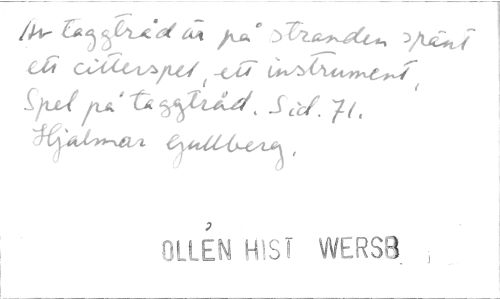 Av taggtråd är på stranden spänt
ett citterspel, ett instrument,
Spel på taggtråd. Sid. 71.
Hjalmar Gullberg.
OLLÉN HIST WERSB